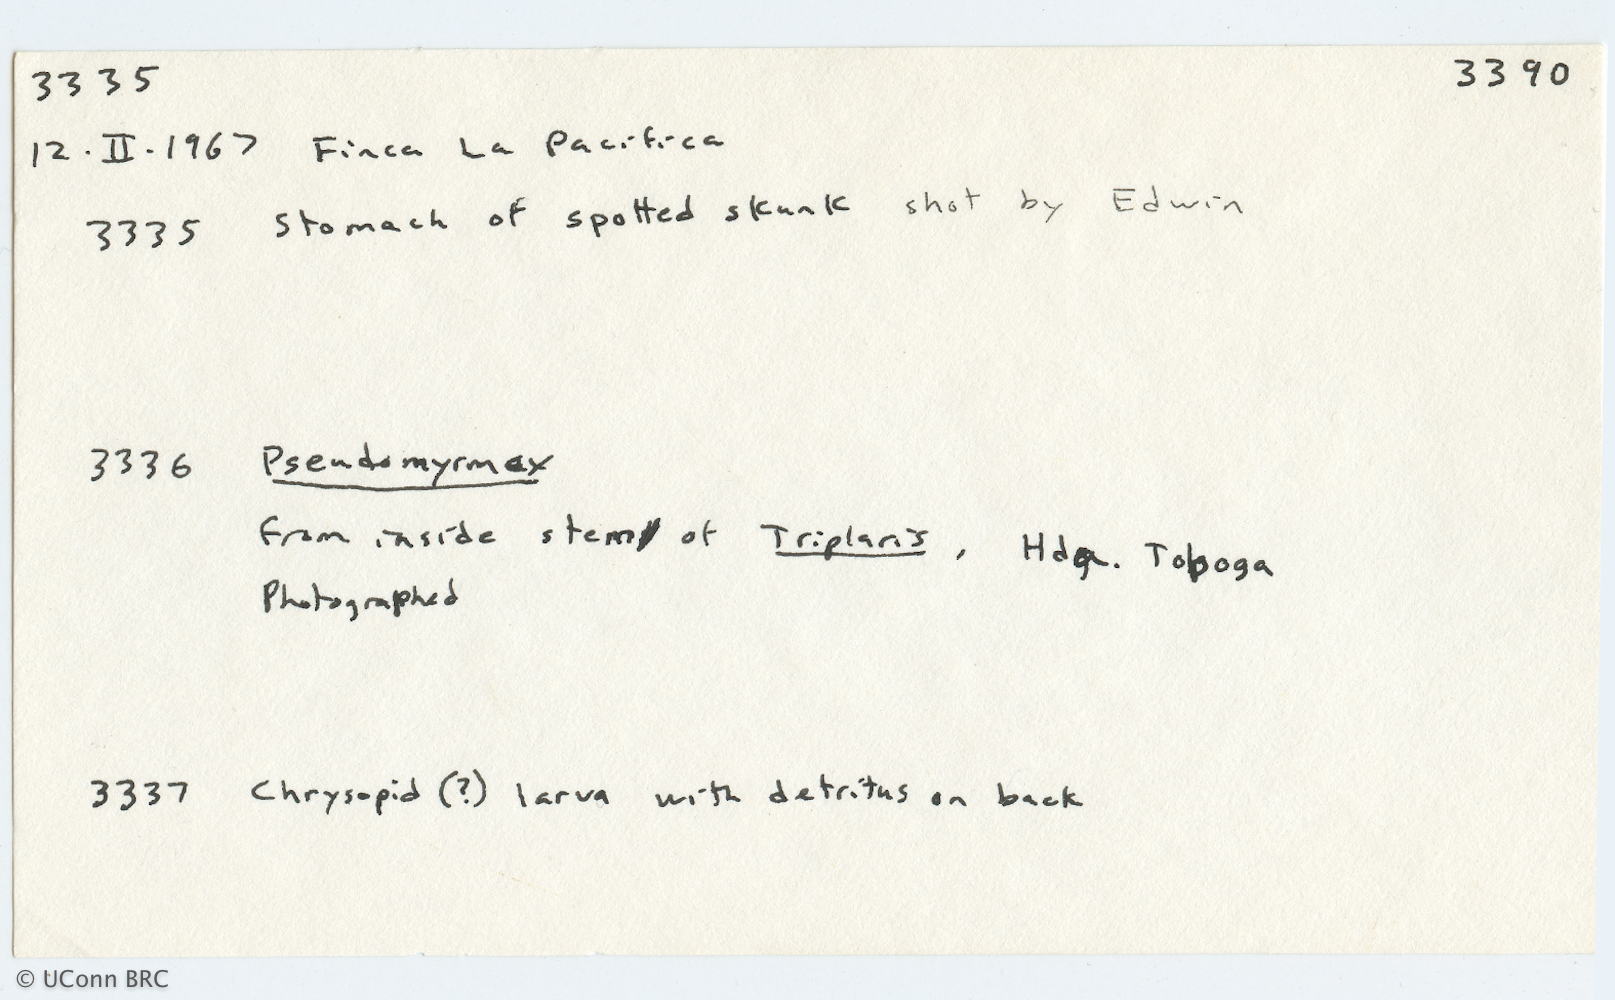 3335 3390
12.II.1967 Finca La Pacifica
3335 Stomach of spotted skunk shot by Edwin
3336 Pseudomyrmex
from inside stem of Triplaris, Hda. Toboga
Photographed
3337 Chrysopid (?) larva with detritus on back
© UConn BRC